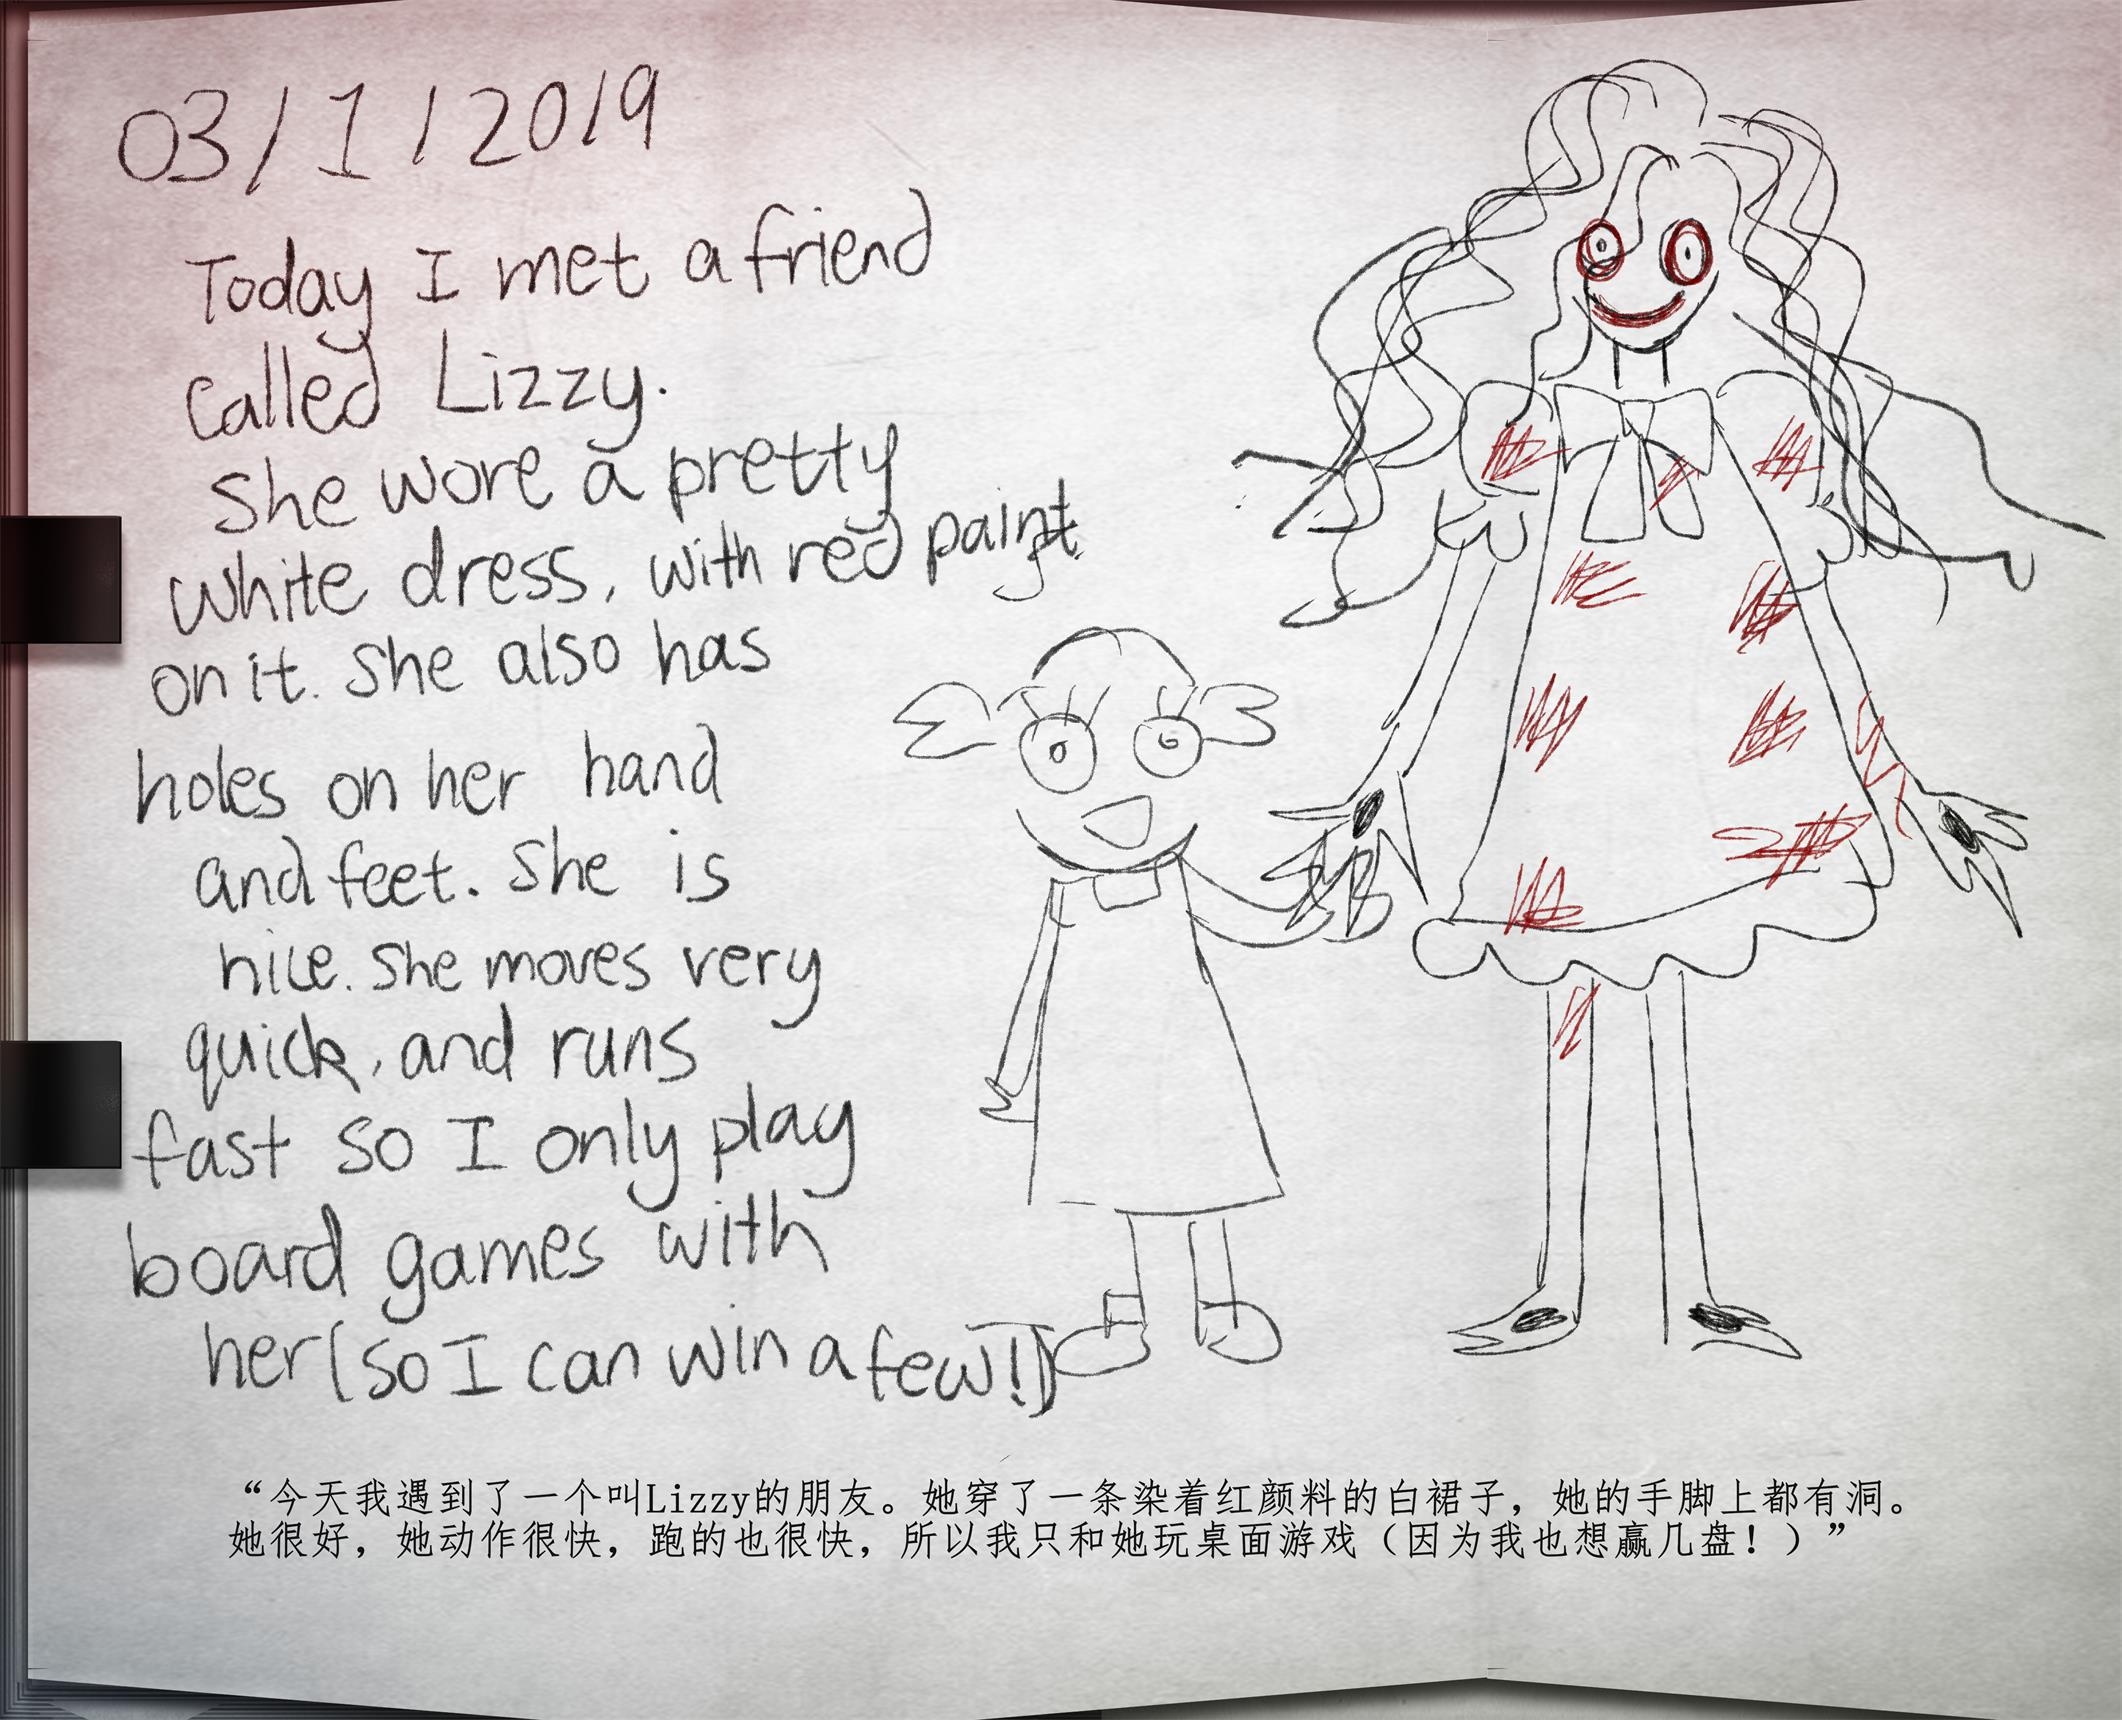 03/1/2019
Today I met a friend
called Lizzy.
She wore a pretty
white dress, with red paint
on it. She also has
holes on her hand
and feet. She is
nice. She moves very
quick, and runs
fast so I only play
board games with
her (so I can win a few!)
“今天我遇到了一个叫Lizzy的朋友。她穿了一条染着红颜料的白裙子，她的手脚上都有洞。
她很好，她动作很快，跑的也很快，所以我只和她玩桌面游戏（因为我也想赢几盘！）”